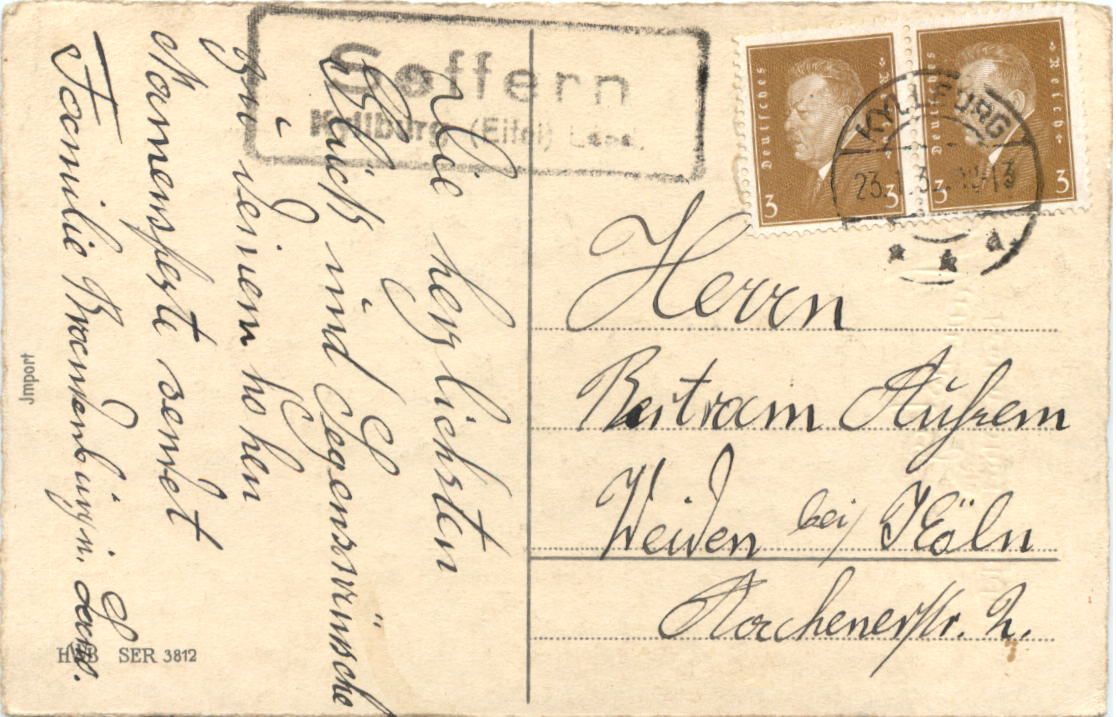 Seffern
Kyllburg (Eifel) Land.
Deutsches Reich
3
Deutsches Reich
3
KYLLBURG
Die herzlichsten
Glück und Segenswünsche
zu deinem hohen
Namensfeste sendet
Familie Brandenburg u.
Herrn
Bertram
Weiden bei Köln
Aachenerstr.
Jmport
HWB SER 3812